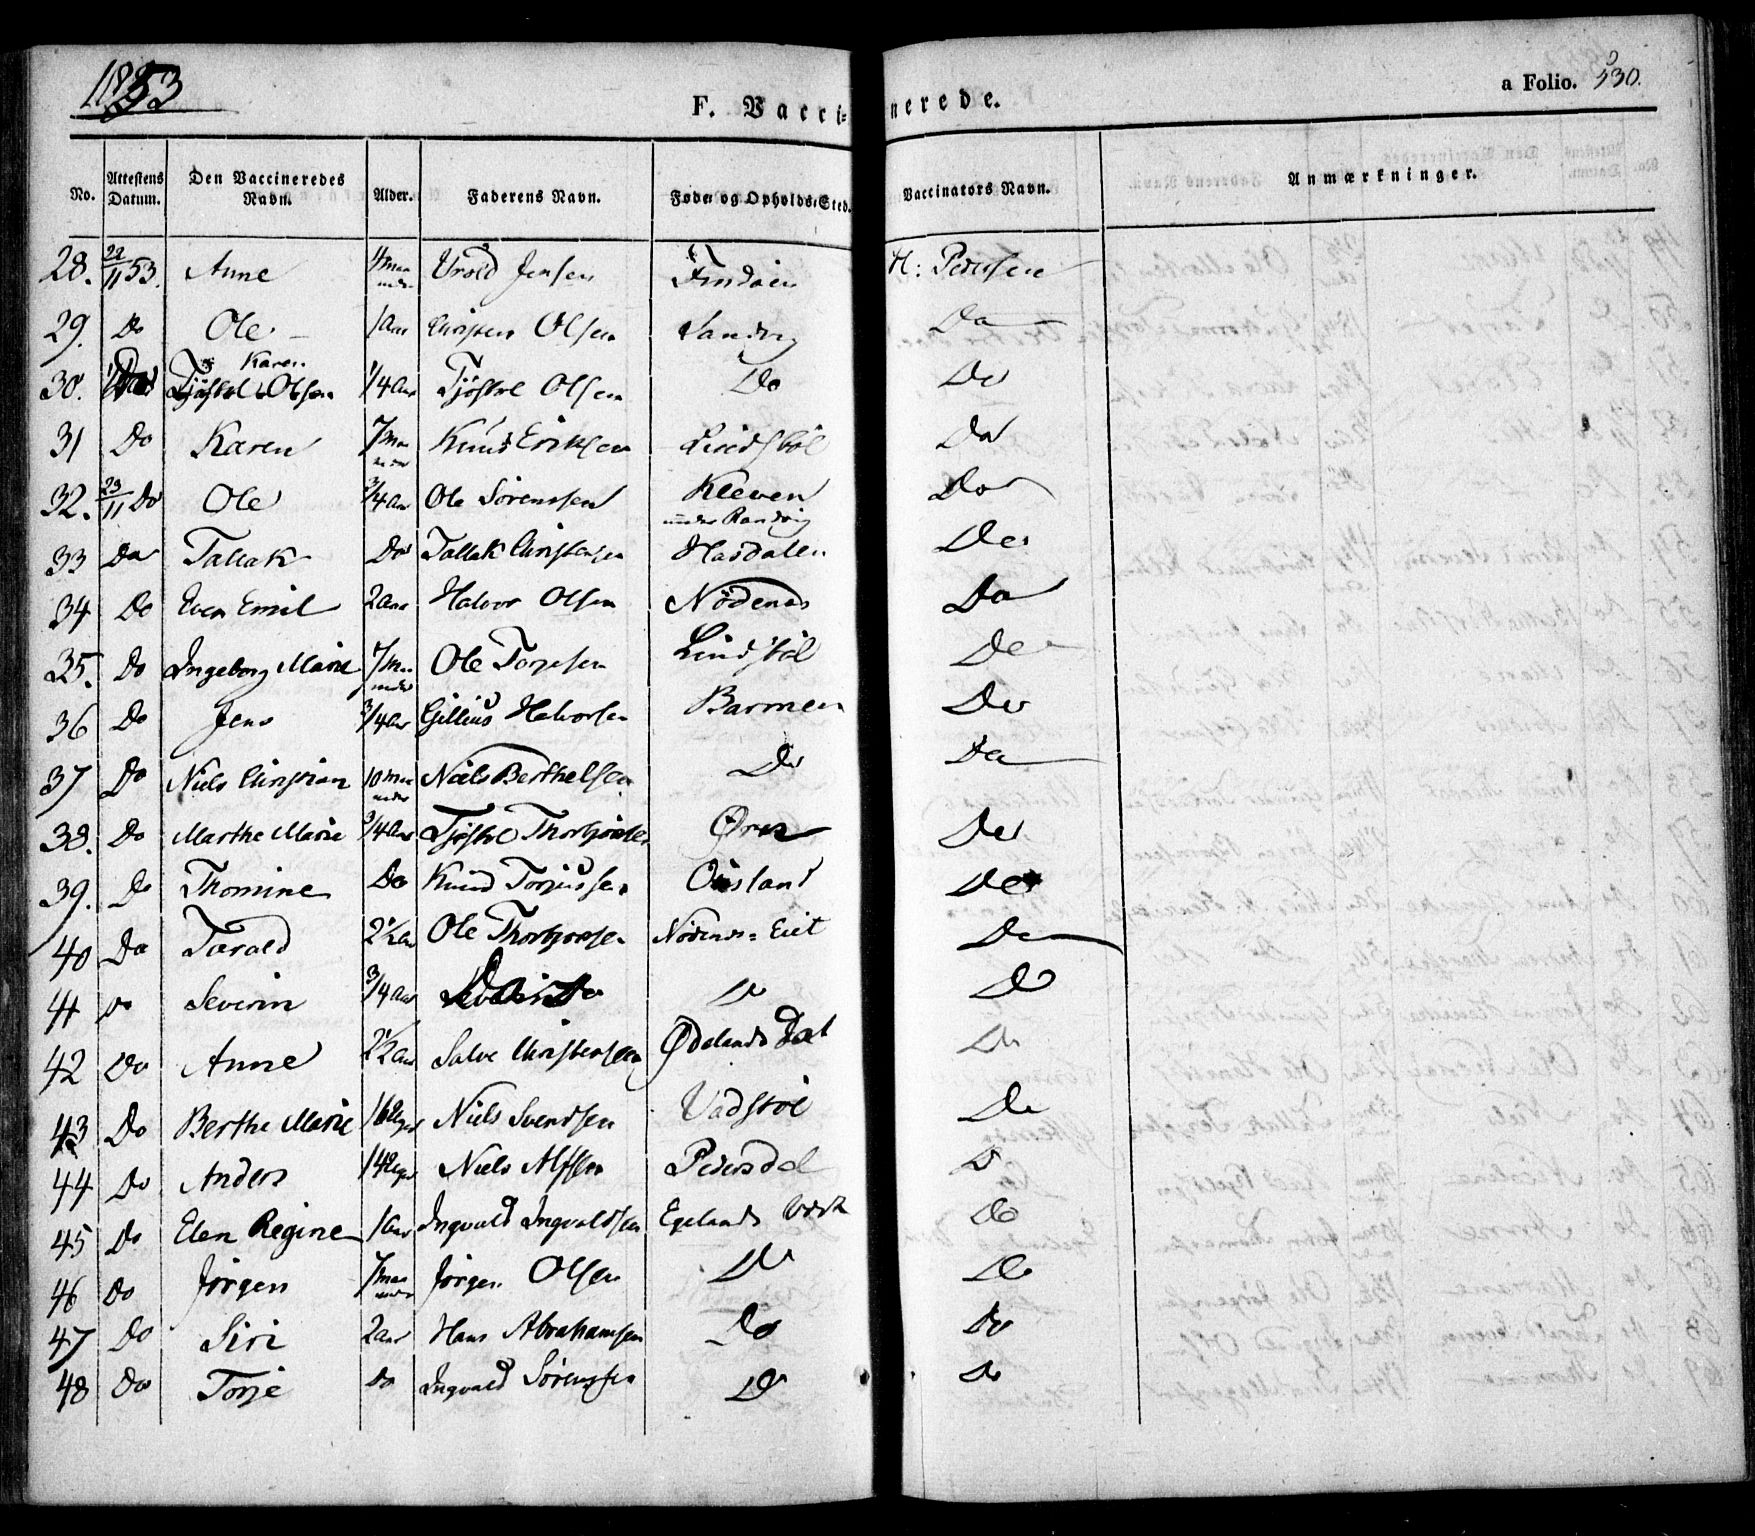 1853
F. Vaccinerede.
a Folio. 530.
No. Attestens Datum. Den Vaccineredes Navn. Alder. Faderens Navn. Føde og Opholds-Sted. Vaccinators Navn. Anmærkninger.
28. 22/11 53. Anne Jensen H: Pedersen
29. Do Ole 1 Aar Christen Olsen Sandvig Do
30. Karen 1/4 Aar Tjöstol Olsen Do Do
31 Do Karen 7 Maaneder Knud Eriksen Lindstöl Do
32. 23/11 Do Ole 3/4 Aar Ole Sörenssen Kleven under Randvig Do
33 Do Tallak Do Tallak Christensen Hasdalen Do
34 Do Even Emil 2 Aar Halvor Olsen Nödenes Do
35. Do Ingeborg Marie 7 Maaneder Ole Torjesen Lindstöl Do
36 Do Jens 3/4 Aar Gjillius Halvorsen Barmen Do
37 Do Niels Christian 10 Maaneder Niels Berthelsen Do Do
38. Do Marthe Marie 3/4 Aar Tjöstol Thorbjörnsen Do
39. Do Thomine Do Knud Torjussen Ousland Do
40 Do Tarald 2 1/2 Aar Ole Thorbjörnsen Nödenes-Eiet Do
41 Do Severin 3/4 Aar Do Do Do
42 Do Anne 2 1/2 Aar Salve Christensen Ødelands Dal Do
43 Do Berthe Marie 16 Uger Niels Svendsen Vadstöl Do
44 Do Anders 14 Uger Niels Alfsen Pedersdal Do
45 Do Elen Regine 1 Aar Ingvald Ingvaldsen Egelands Værk Do
46 Do Jörgen 7 Maaneder Jörgen Olsen Do Do
47 Do Siri 2 Aar Hans Abrahamsen Do Do
48 Do Torje Do Ingvald Sörenssen Do Do